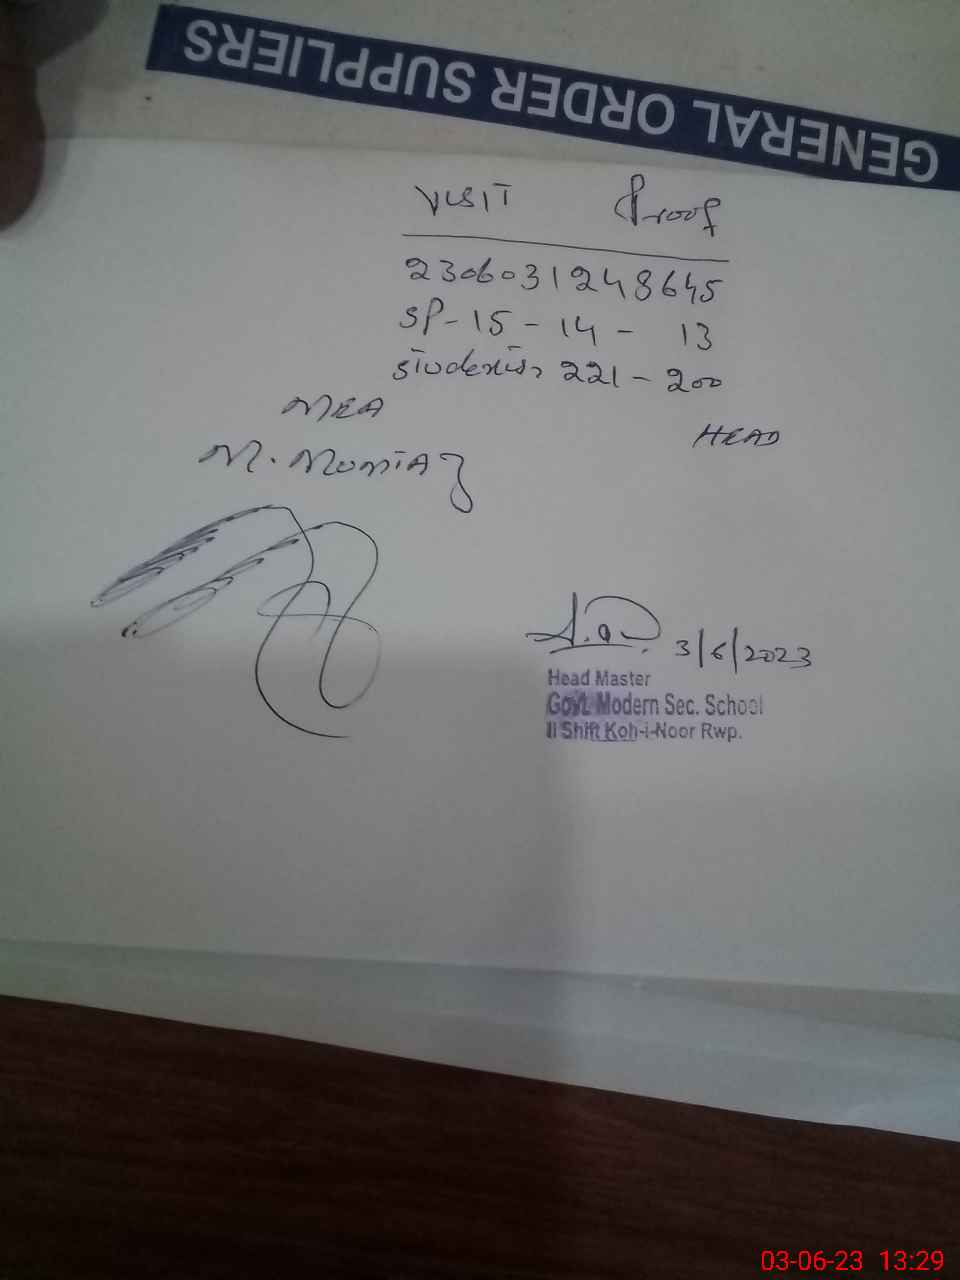 GENERAL ORDER SUPPLIERS
VISIT Proof
2306031248645
SP-15-14-13
Students, 221-200
MEA
HEAD
M. Momtaz
3/6/2023
Head Master
Govt. Modern Sec. School
II Shift Koh-i-Noor Rwp.
03-06-23 13:29